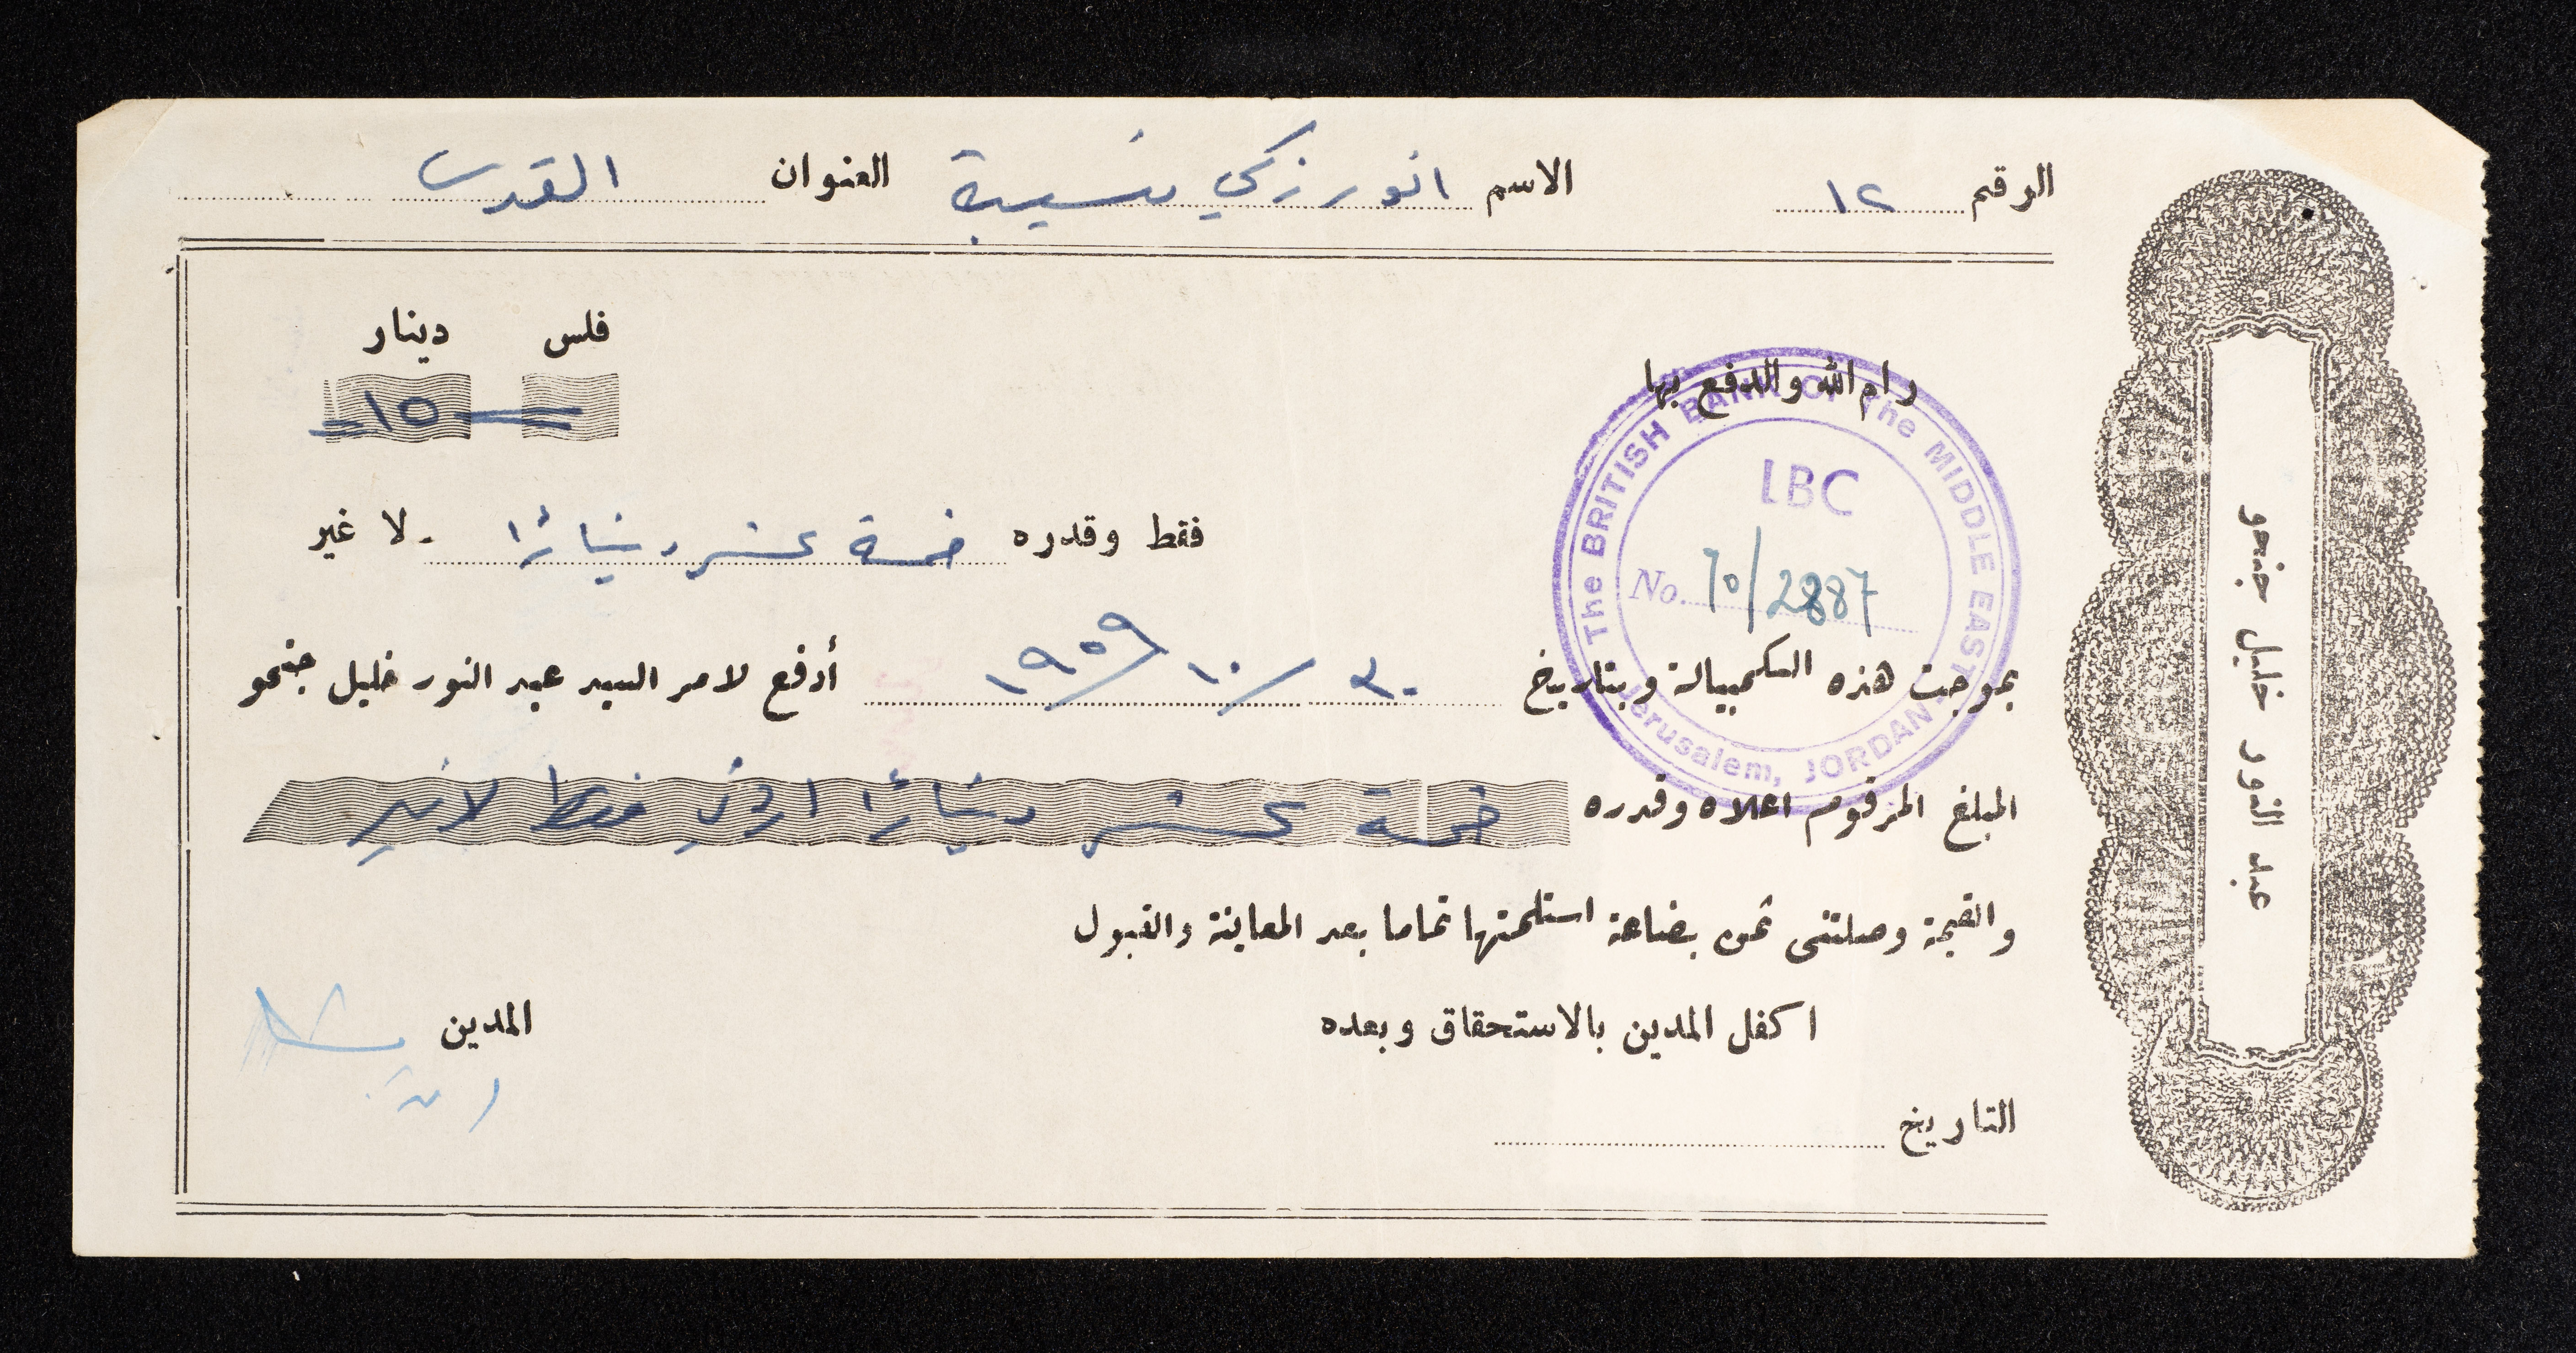 الرقم ١٢ الاسم انور زكي نسيبة العنوان القدس
فلس دينار
١٥
رام الله والدفع بها
The BRITISH BANK OF The MIDDLE EAST
LBC
No. 70/2887
Jerusalem, JORDAN
فقط وقدره خمسة عشر دينارًا ـ لا غير
بموجب هذه الكمبيالة وبتاريخ ٣٠ / ١٠ / ١٩٥٩ أدفع لامر السيد عبد النور خليل جنحو
المبلغ المرقوم اعلاه وقدره خمسة عشر دينارًا اردني فقط لا غير
والقيمة وصلتني ثمن بضاعة استلمتها تماما بعد المعاينة والقبول
اكفل المدين بالاستحقاق وبعده المدين
التاريخ
عبد النور خليل جنحو